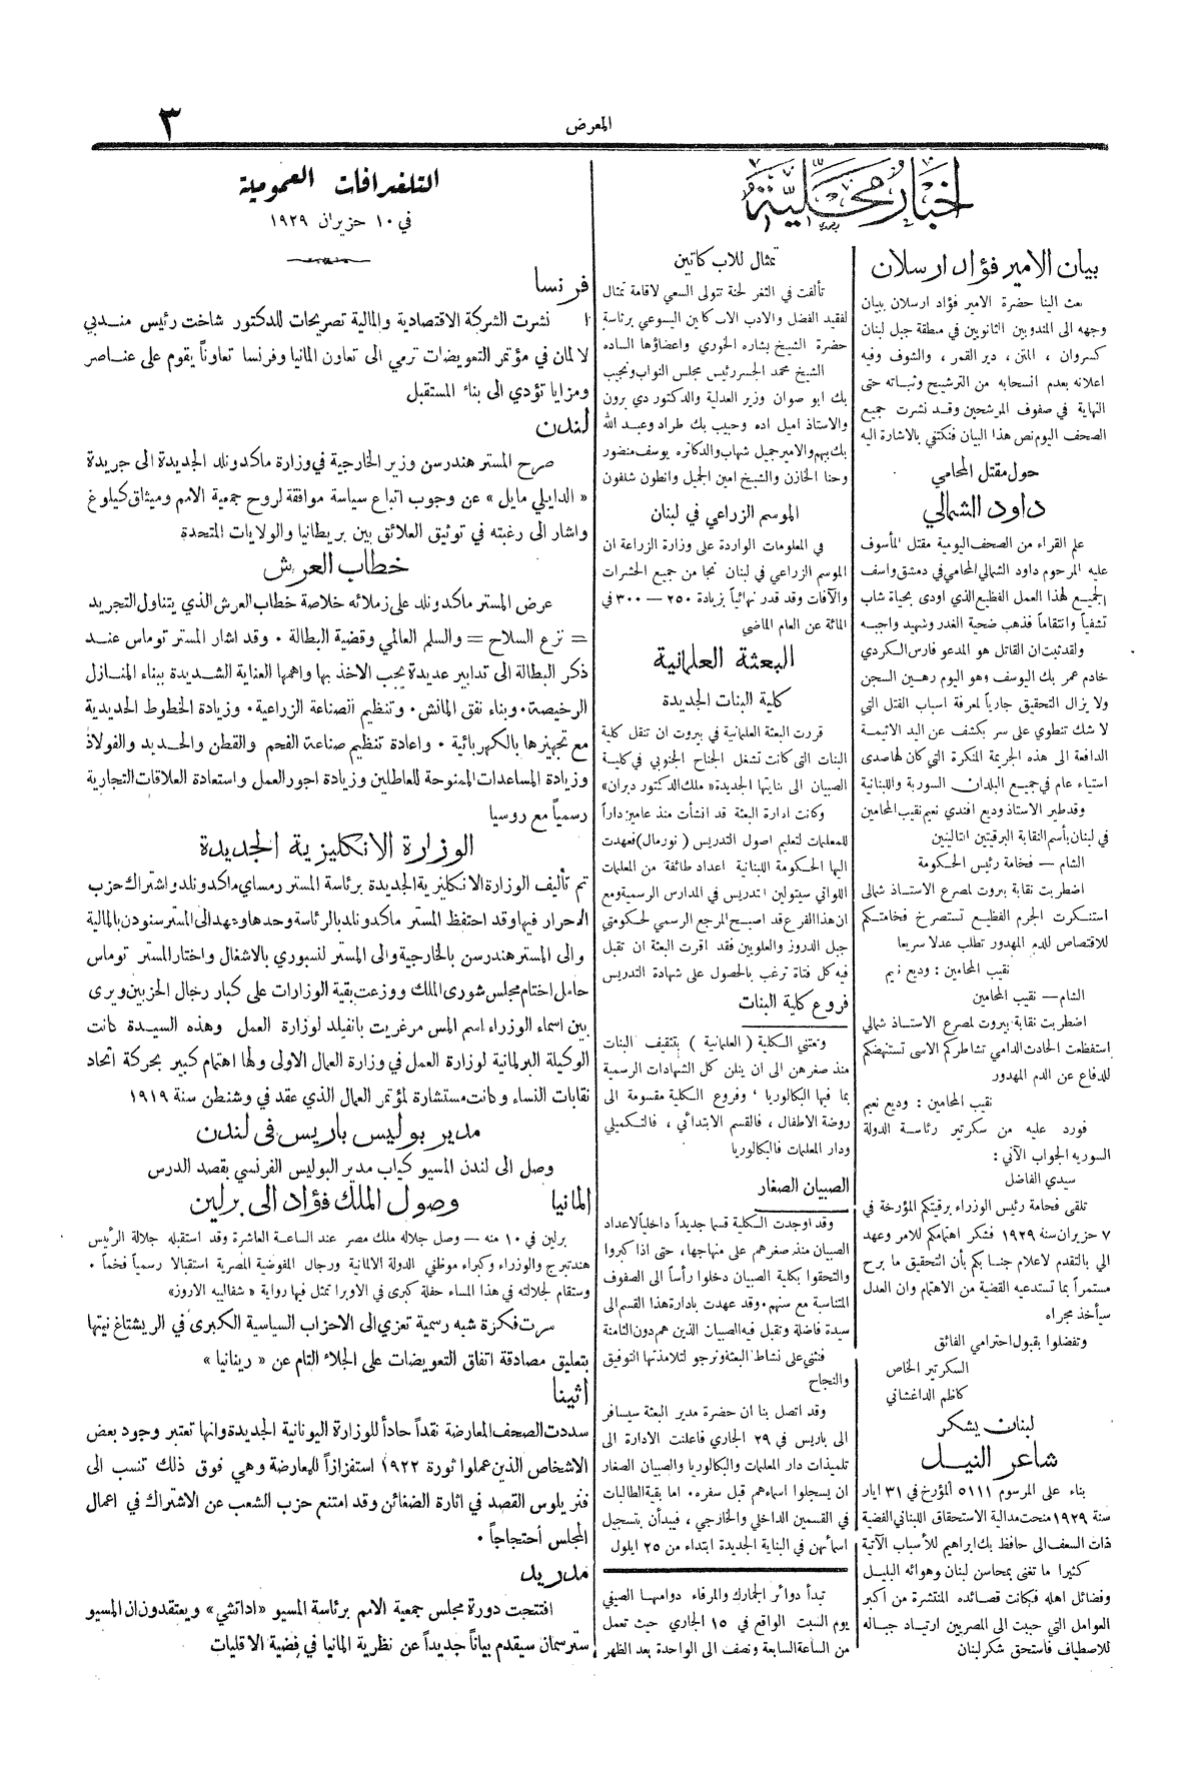 المعرض
٣
اخبار محلية
بيان الامير فؤاد ارسلان
بعث الينا حضرة الامير فؤاد ارسلان بيان
وجهه الى المندوبين الثانويين في منطقة جبل لبنان
كسروان ، المتن ، دير القمر ، والشوف وفيه
اعلانه بعدم انسحابه من الترشيح وثباته حتى
النهاية في صفوف المرشحين وقد نشرت جميع
الصحف اليوم نص هذا البيان فنكتفي بالاشارة اليه
حول مقتل المحامي
داود الشمالي
علم القراء من الصحف اليومية مقتل المأسوف
عليه المرحوم داود الشمالي المحامي في دمشق واسف
الجميع لهذا العمل الفظيع الذي اودى بحياة شاب
تشفياً وانتقاماً فذهب ضحية الغدر وشهيد واجبه
ولقد ثبت ان القاتل هو المدعو فارس الكردي
خادم عمر بك اليوسف وهو اليوم رهين السجن
ولا يزال التحقيق جارياً لمعرفة اسباب القتل التي
لا شك تنطوي على سر بكشف عن اليد الاثيمة
الدافعة الى هذه الجريمة المنكرة التي كان لها صدى
استياء عام في جميع البلدان السورية واللبنانية
وقد طير الاستاذ وديع افندي نعيم نقيب المحامين
في لبنان بأسم النقابة البرقيتين التاليتين
الشام — فخامة رئيس الحكومة
اضطربت نقابة بيروت لمصرع الاستاذ شمالي
استنكرت الجرم الفظيع تستصرخ فخامتكم
للاقتصاص للدم المهدور تطلب عدلا سريعا
نقيب المحامين : وديع نعيم
الشام — نقيب المحامين
اضطربت نقابة بيروت لمصرع الاستاذ شمالي
استفظعت الحادث الدامي تشاطركم الاسى تستنهضكم
للدفاع عن الدم المهدور
نقيب المحامين : وديع نعيم
فورد عليه من سكرتير رئاسة الدولة
السوريه الجواب الآتي :
سيدي الفاضل
تلقى فخامة رئيس الوزراء برقيتكم المؤرخة في
٧ حزيران سنة ١٩٢٩ فشكر اهتمامكم للامر وعهد
الي بالتقدم لاعلام جنابكم بأن التحقيق ما برح
مستمراً بما تستدعيه القضية من الاهتمام وان العدل
سيأخذ مجراه
وتفضلوا بقبول احترامي الفائق
السكرتير الخاص
كاظم الداغستاني
لبنان يشكر
شاعر النيل
بناء على المرسوم ٥١١١ المؤرخ في ٣١ ايار
سنة ١٩٢٩ منحت مدالية الاستحقاق اللبناني الفضية
ذات السعف الى حافظ بك ابراهيم للأسباب الآتية
كثيرا ما تغنى بمحاسن لبنان وهوائه البليل
وفضائل اهله فكانت قصائده المنتشرة من اكبر
العوامل التي حببت الى المصريين ارتياد جباله
للاصطياف فاستحق شكر لبنان
تمثال للاب كاتين
تألفت في الثغر لجنة تتولى السعي لاقامة تمثال
لفقيد الفضل والادب الاب كاتين اليسوعي برئاسة
حضرة الشيخ بشاره الخوري واعضاؤها الساده
الشيخ محمد الجسر رئيس مجلس النواب ونجيب
بك ابو صوان وزير العدلية والدكتور دي برون
والاستاذ اميل اده وحبيب بك طراد وعبد الله
بك بيهم والامير جميل شهاب والدكاتره يوسف منصور
وحنا الخازن والشيخ امين الجميل وانطون شلفون
الموسم الزراعي في لبنان
في المعلومات الواردة على وزارة الزراعة ان
الموسم الزراعي في لبنان نجا من جميع الحشرات
والآفات وقد قدر نهائياً بزيادة ٢٥٠ — ٣٠٠ في
المائة عن العام الماضي
البعثة العلمانية
كلية البنات الجديدة
قررت البعثة العلمانية في بيروت ان تنقل كلية
البنات التي كانت تشغل الجناح الجنوبي في كلية
الصبيان الى بنايتها الجديدة « ملك الدكتور دبران »
وكانت ادارة البعثة قد انشأت منذ عامين داراً
للمعلمات لتعليم اصول التدريس ( نورمال ) فعهدت
اليها الحكومة اللبنانية اعداد طائفة من المعلمات
اللواتي سيتولين التدريس في المدارس الرسمية ومع
ان هذا الفرع قد اصبح المرجع الرسمي لحكومتي
جبل الدروز والعلويين فقد اقرت البعثة ان تقبل
فيه كل فتاة ترغب بالحصول على شهادة التدريس
فروع كلية البنات
وتعتني الكلية ( العلمانية ) بتثقيف البنات
منذ صغرهن الى ان ينلن كل الشهادات الرسمية
بما فيها البكالوريا ، وفروع الكلية مقسومة الى
روضة الاطفال ، فالقسم الابتدائي ، فالتكميلي
ودار المعلمات فالبكالوريا
الصبيان الصغار
وقد اوجدت الكلية قسما جديداً داخلياً لاعداد
الصبيان منذ صغرهم على منهاجها ، حتى اذا كبروا
والتحقوا بكلية الصبيان دخلوا رأساً الى الصفوف
المتناسبة مع سنهم . وقد عهدت بادارة هذا القسم الى
سيدة فاضلة وتقبل فيه الصبيان الذين هم دون الثامنة
فنثني على نشاط البعثة ونرجو لتلامذتها التوفيق
والنجاح
وقد اتصل بنا ان حضرة مدير البعثة سيسافر
الى باريس في ٢٩ الجاري فاعلنت الادارة الى
تلميذات دار المعلمات والبكالوريا والصبيان الصغار
ان يسجلوا اسماءهم قبل سفره . اما بقية الطالبات
في القسمين الداخلي والخارجي ، فيبدأن بتسجيل
اسمائهن في البناية الجديدة ابتداء من ٢٥ ايلول
تبدأ دوائر الجمارك والمرفاء دوامها الصيفي
يوم السبت الواقع في ١٥ الجاري حيث تعمل
من الساعة السابعة ونصف الى الواحدة بعد الظهر
التلغرافات العمومية
في ١٠ حزيران ١٩٢٩
فرنسا
نشرت الشركة الاقتصادية والمالية تصريحات للدكتور شاخت رئيس مندبي
لالمان في مؤتمر التعويضات ترمي الى تعاون المانيا وفرنسا تعاوناً يقوم على عناصر
ومزايا تؤدي الى بناء المستقبل
لندن
صرح المستر هندرسن وزير الخارجية في وزارة ماكدونلد الجديدة الى جريدة
« الدايلي مايل » عن وجوب اتباع سياسة موافقة لروح جمعية الامم وميثاق كيلوغ
واشار الى رغبته في توثيق العلائق بين بريطانيا والولايات المتحدة
خطاب العرش
عرض المستر ماكدونلد على زملائه خلاصة خطاب العرش الذي يتناول التجريد
= نزع السلاح = والسلم العالمي وقضية البطالة . وقد اشار المستر توماس عند
ذكر البطالة الى تدابير عديدة يجب الاخذ بها واهمها العناية الشديدة ببناء المنازل
الرخيصة . وبناء نفق المانش . وتنظيم الصناعة الزراعية . وزيادة الخطوط الحديدية
مع تجهيزها بالكهربائية . واعادة تنظيم صناعة الفحم والقطن والحديد والفولاذ
وزيادة المساعدات الممنوحة للعاطلين وزيادة اجور العمل واستعادة العلاقات التجارية
رسمياً مع روسيا
الوزارة الانكليزية الجديدة
تم تأليف الوزارة الانكليزية الجديدة برئاسة المستر رمساي ماكدونلد واشتراك حزب
الاحرار فيها وقد احتفظ المستر ماكدونلد بالرئاسة وحدها وعهد الى المستر سنودن بالمالية
والى المستر هندرسن بالخارجية والى المستر لنسبوري بالاشغال واختار المستر توماس
حامل اختام مجلس شورى الملك ووزعت بقية الوزارات على كبار رجال الحزبين ويرى
بين اسماء الوزراء اسم المس مرغريت بانفيلد لوزارة العمل وهذه السيدة كانت
الوكيلة البرلمانية لوزارة العمل في وزارة العمال الاولى ولها اهتمام كبير بحركة اتحاد
نقابات النساء وكانت مستشارة لمؤتمر العمال الذي عقد في وشنطن سنة ١٩١٩
مدير بوليس باريس في لندن
وصل الى لندن المسيو كياب مدير البوليس الفرنسي بقصد الدرس
المانيا
وصول الملك فؤاد الى برلين
برلين في ١٠ منه — وصل جلاله ملك مصر عند الساعة العاشرة وقد استقبله جلالة الرئيس
هندنبرج والوزراء وكبراء موظفي الدولة الالمانية ورجال المفوضية المصرية استقبالا رسمياً فخماً .
وستقام لجلالته في هذا المساء حفلة كبرى في الاوبرا تمثل فيها رواية « شفاليه الاروز »
سرت فكرة شبه رسمية تعزي الى الاحزاب السياسية الكبرى في الريشتاغ نيتها
بتعليق مصادقة اتفاق التعويضات على الجلاء التام عن « رينانيا »
اثينا
سددت الصحف المعارضة نقداً حاداً للوزارة اليونانية الجديدة وانها تعتبر وجود بعض
الاشخاص الذين عملوا ثورة ١٩٢٢ استفزازاً للمعارضة وهي فوق ذلك تنسب الى
فنزيلوس القصد في اثارة الضغائن وقد امتنع حزب الشعب عن الاشتراك في اعمال
المجلس أحتجاجاً .
مدريد
افتتحت دورة مجلس جمعية الامم برئاسة المسيو «اداتشي» ويعتقدون ان المسيو
سترسمان سيقدم بياناً جديداً عن نظرية المانيا في قضية الاقليات